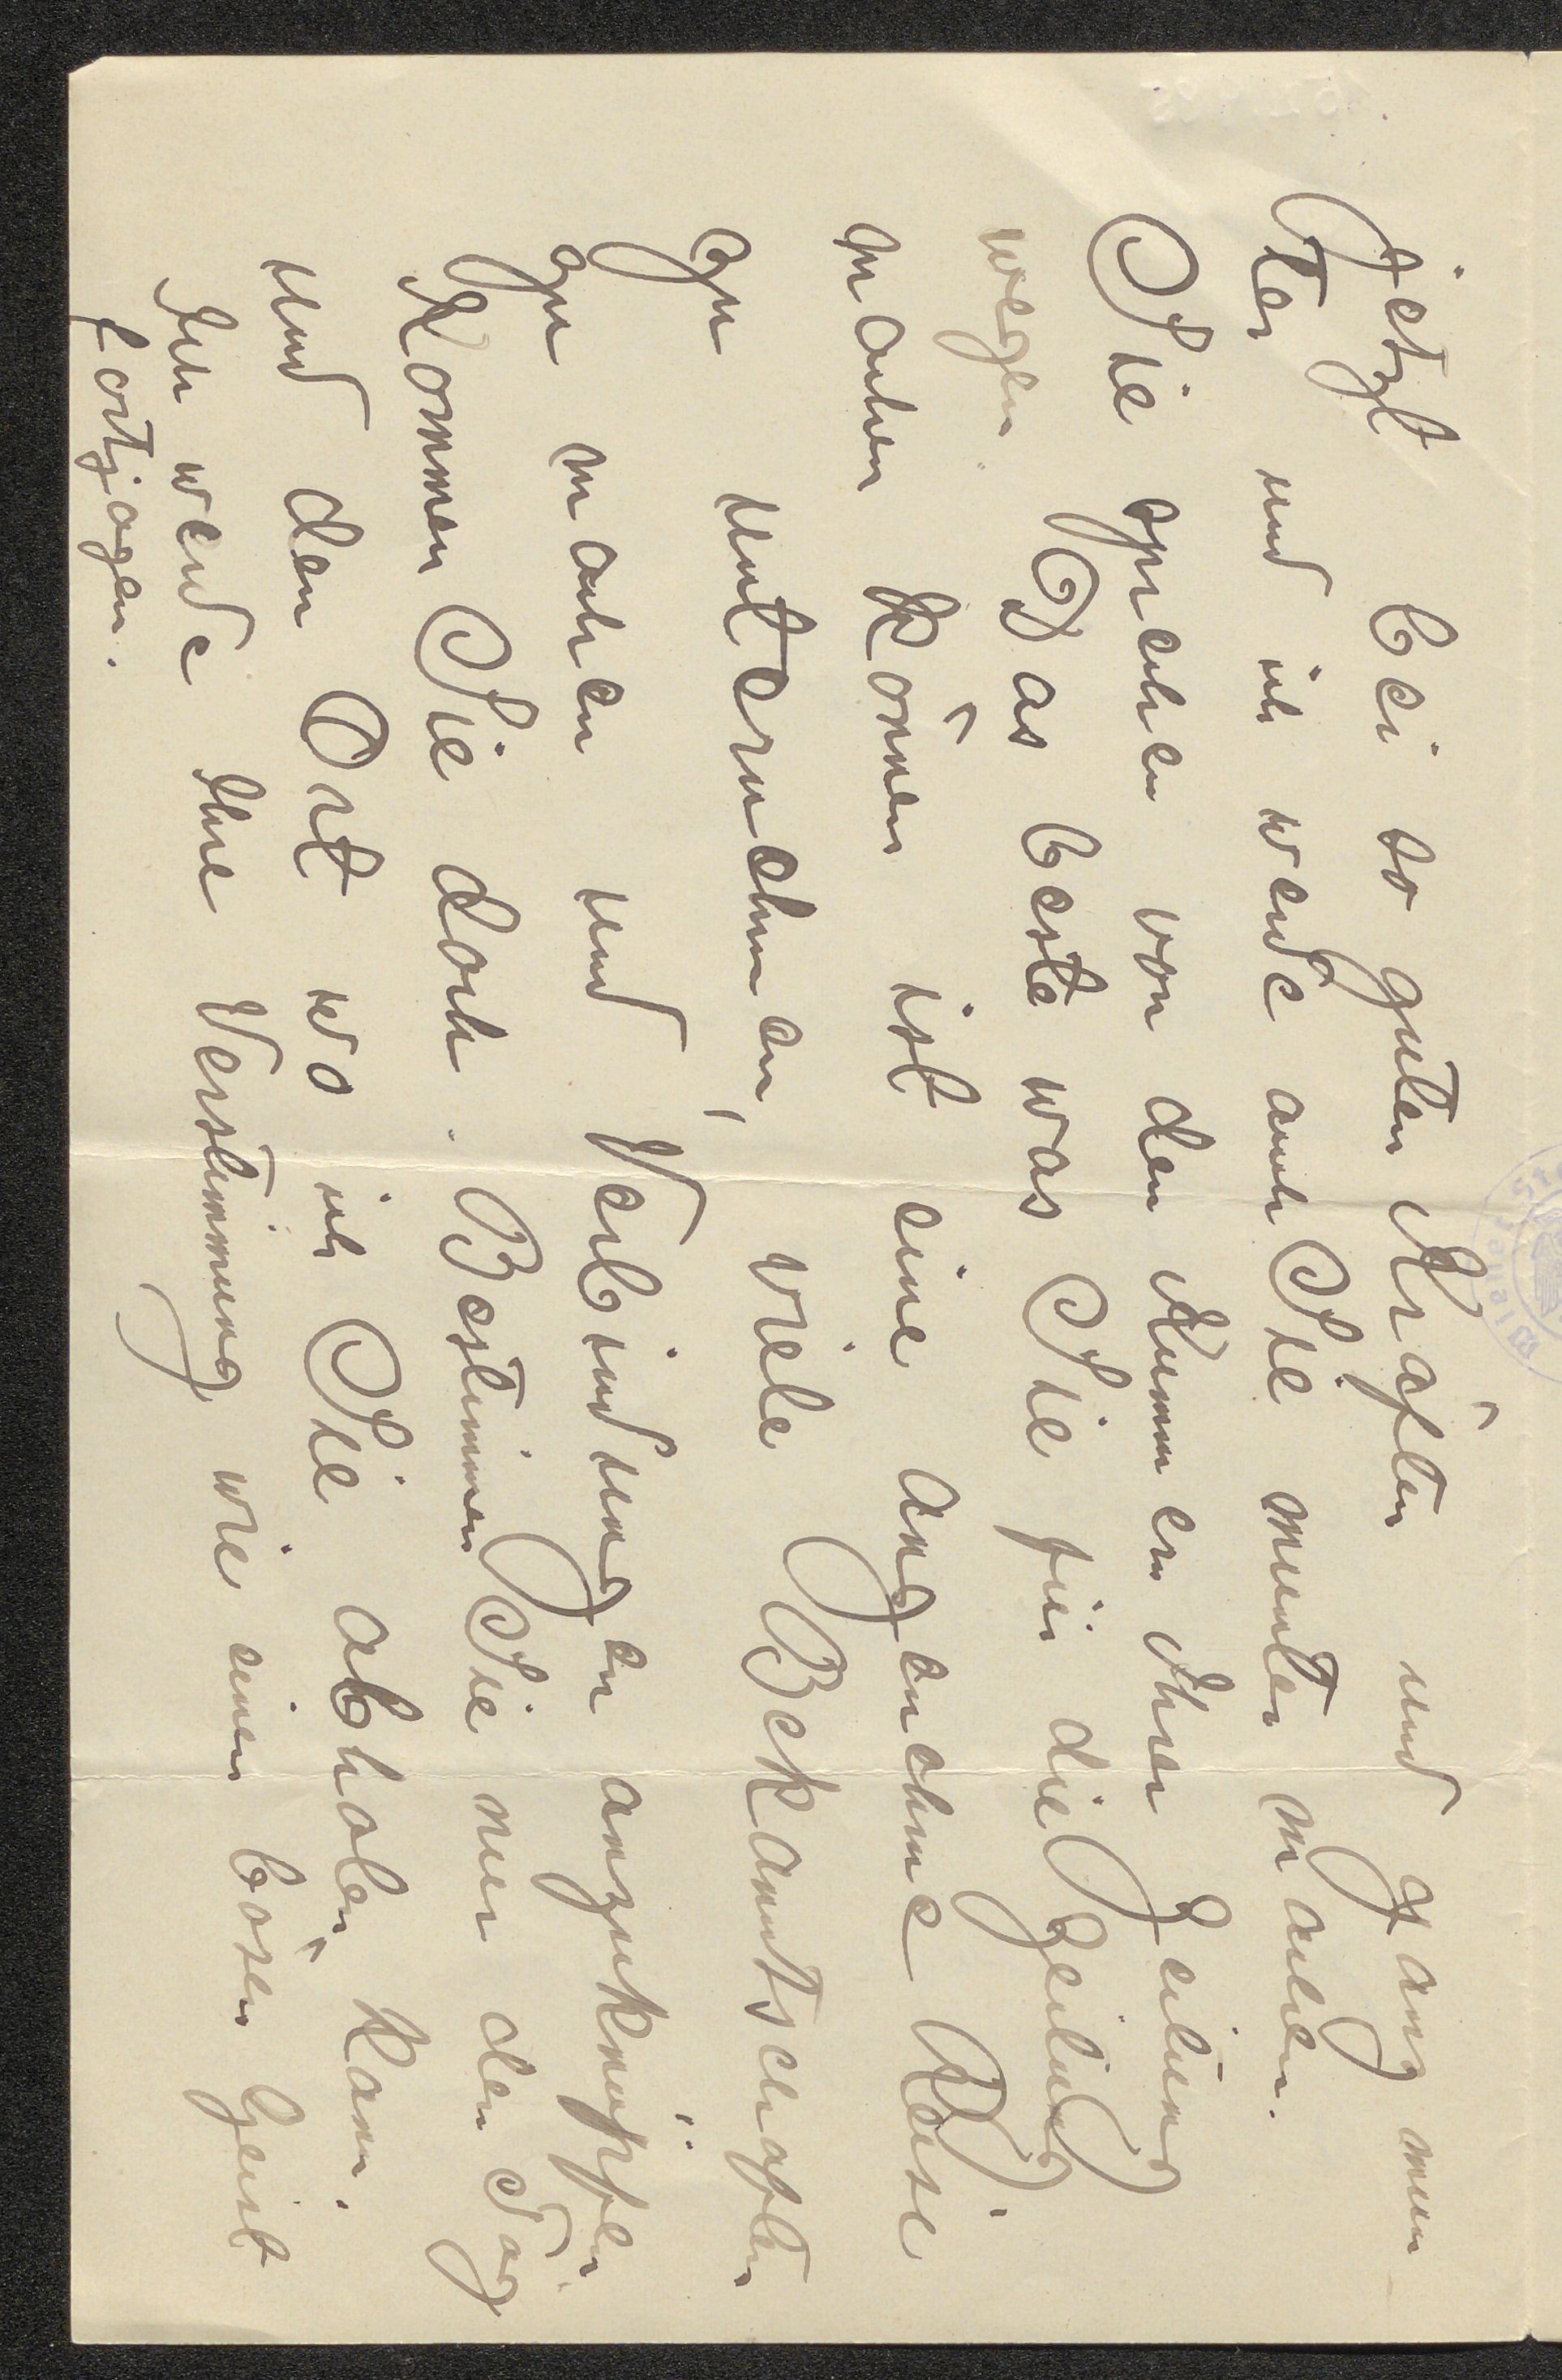 jetzt bei so guten Kräften und ganz mun-
ter und ich werde auch Sie munter machen.
Sie sprechen von den Kummern ihrer Zeitung
wegen. Das beste was Sie für die Zeitung
machen können ist eine angenehme Reise
zu unternehmen, viele Bekanntschaften
zu machen und Verbindungen anzuknüpfen.
Kommen Sie doch. Bestimmen Sie nur den Tag
und den Ort wo ich Sie abholen kann.
Ich werde Ihre Verstimmung wie einen bösen Geist
fortjagen.